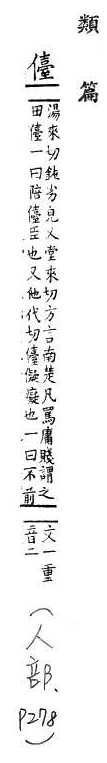 類篇
儓
湯來切鈍劣皃又堂來切方言南楚凡罵庸賤謂之
田儓一曰陪儓臣也又他代切儓儗癡也一曰不前
文一重
音二
(人部、P278)